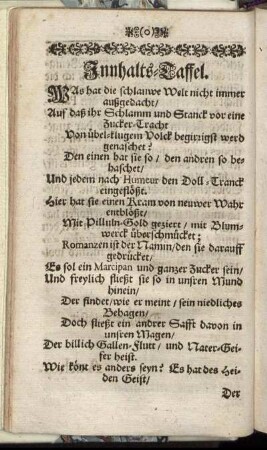 (o)
Jnnhalts-Taffel.
WAs hat die schlauwe Welt nicht immer
außgedacht/
Auf daß ihr Schlamm und Stanck vor eine
Zucker-Tracht
Von übel-klugem Volck begirzigst werd
genaschet?
Den einen hat sie so / den andren so be-
haschet/
Und jedem nach Humeur den Doll-Tranck
eingeflößt.
Hier hat sie einen Kram von neuwer Wahr
entblößt/
Mit Pilluln-Gold geziert / mit Blum-
werck überschmücket;
Romanzen ist der Namm/den sie darauff
gedrücket/
Es sol ein Marcipan und ganzer Zucker sein/
Und freylich fließt sie so in unsren Mund
hinein/
Der findet/wie er meint / sein niedliches
Behagen/
Doch fließt ein andrer Safft davon in
unsren Magen/
Der billich Gallen-Flutt / und Nater-Gei-
fer heist.
Wie könt es anders seyn? Es hat des Hei-
den Geist/
Der